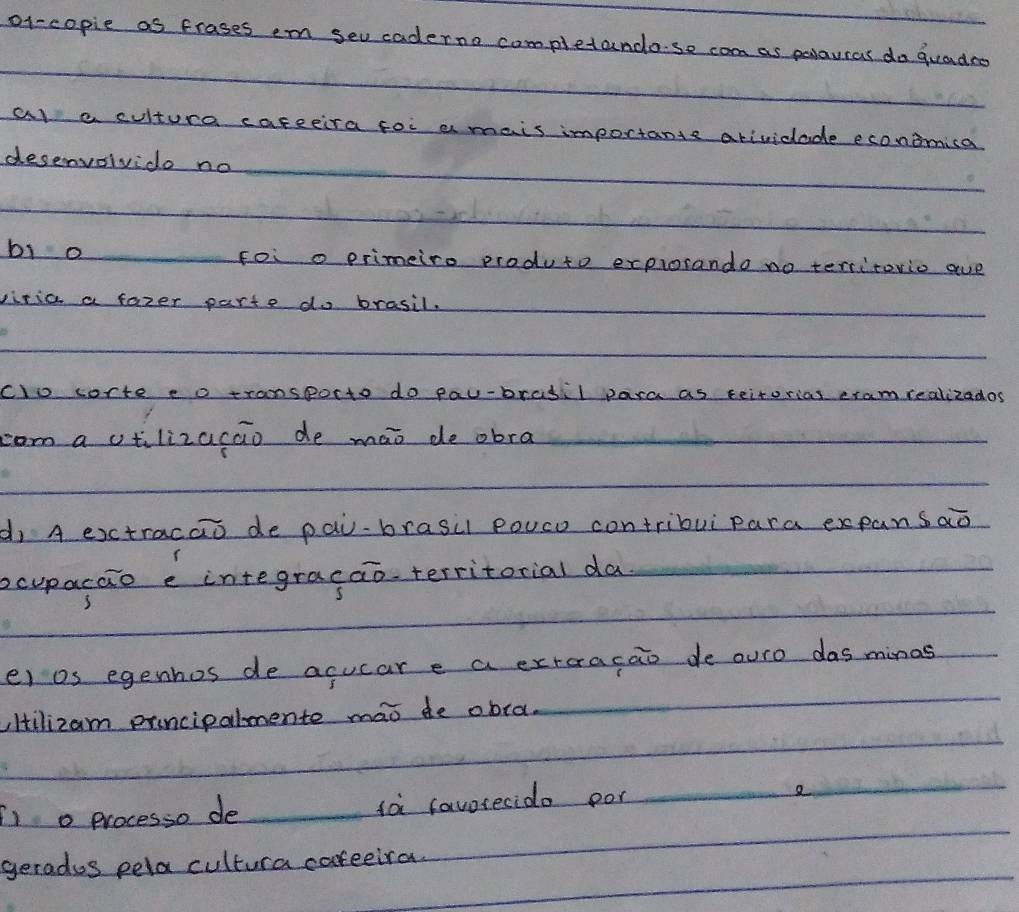 01-copie as frases em seu caderno completando-se com as palavras do quadro
a) a cultura cafeeira foi a mais importante atividade econômica
desenvolvido no
b) o ______ foi o primeiro produto explorando no territorio que
viria a fazer parte do brasil.
c) o corte e o transporto do pau-brasil para as feitorias eram realizados
com a utilização de mão de obra
d) A exctração de pau-brasil pouco contribui para expansão
ocupação e integração territorial da
e) os egenhos de açucar e a extração de ouro das minas
ultilizam principalmente mão de obra.
f) o processo de ______ foi favorecido por ______ e
gerados pela cultura cafeeira.